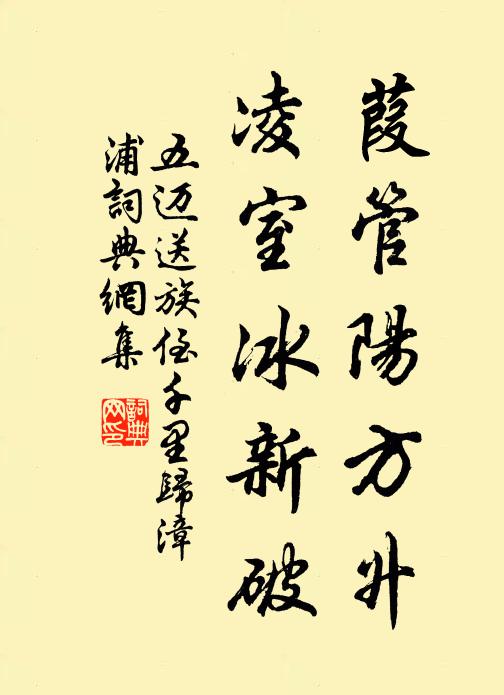 葭管陽方升
凌室冰新破
五迈送族侄千里歸漳
浦詞典網集
詞典
网印